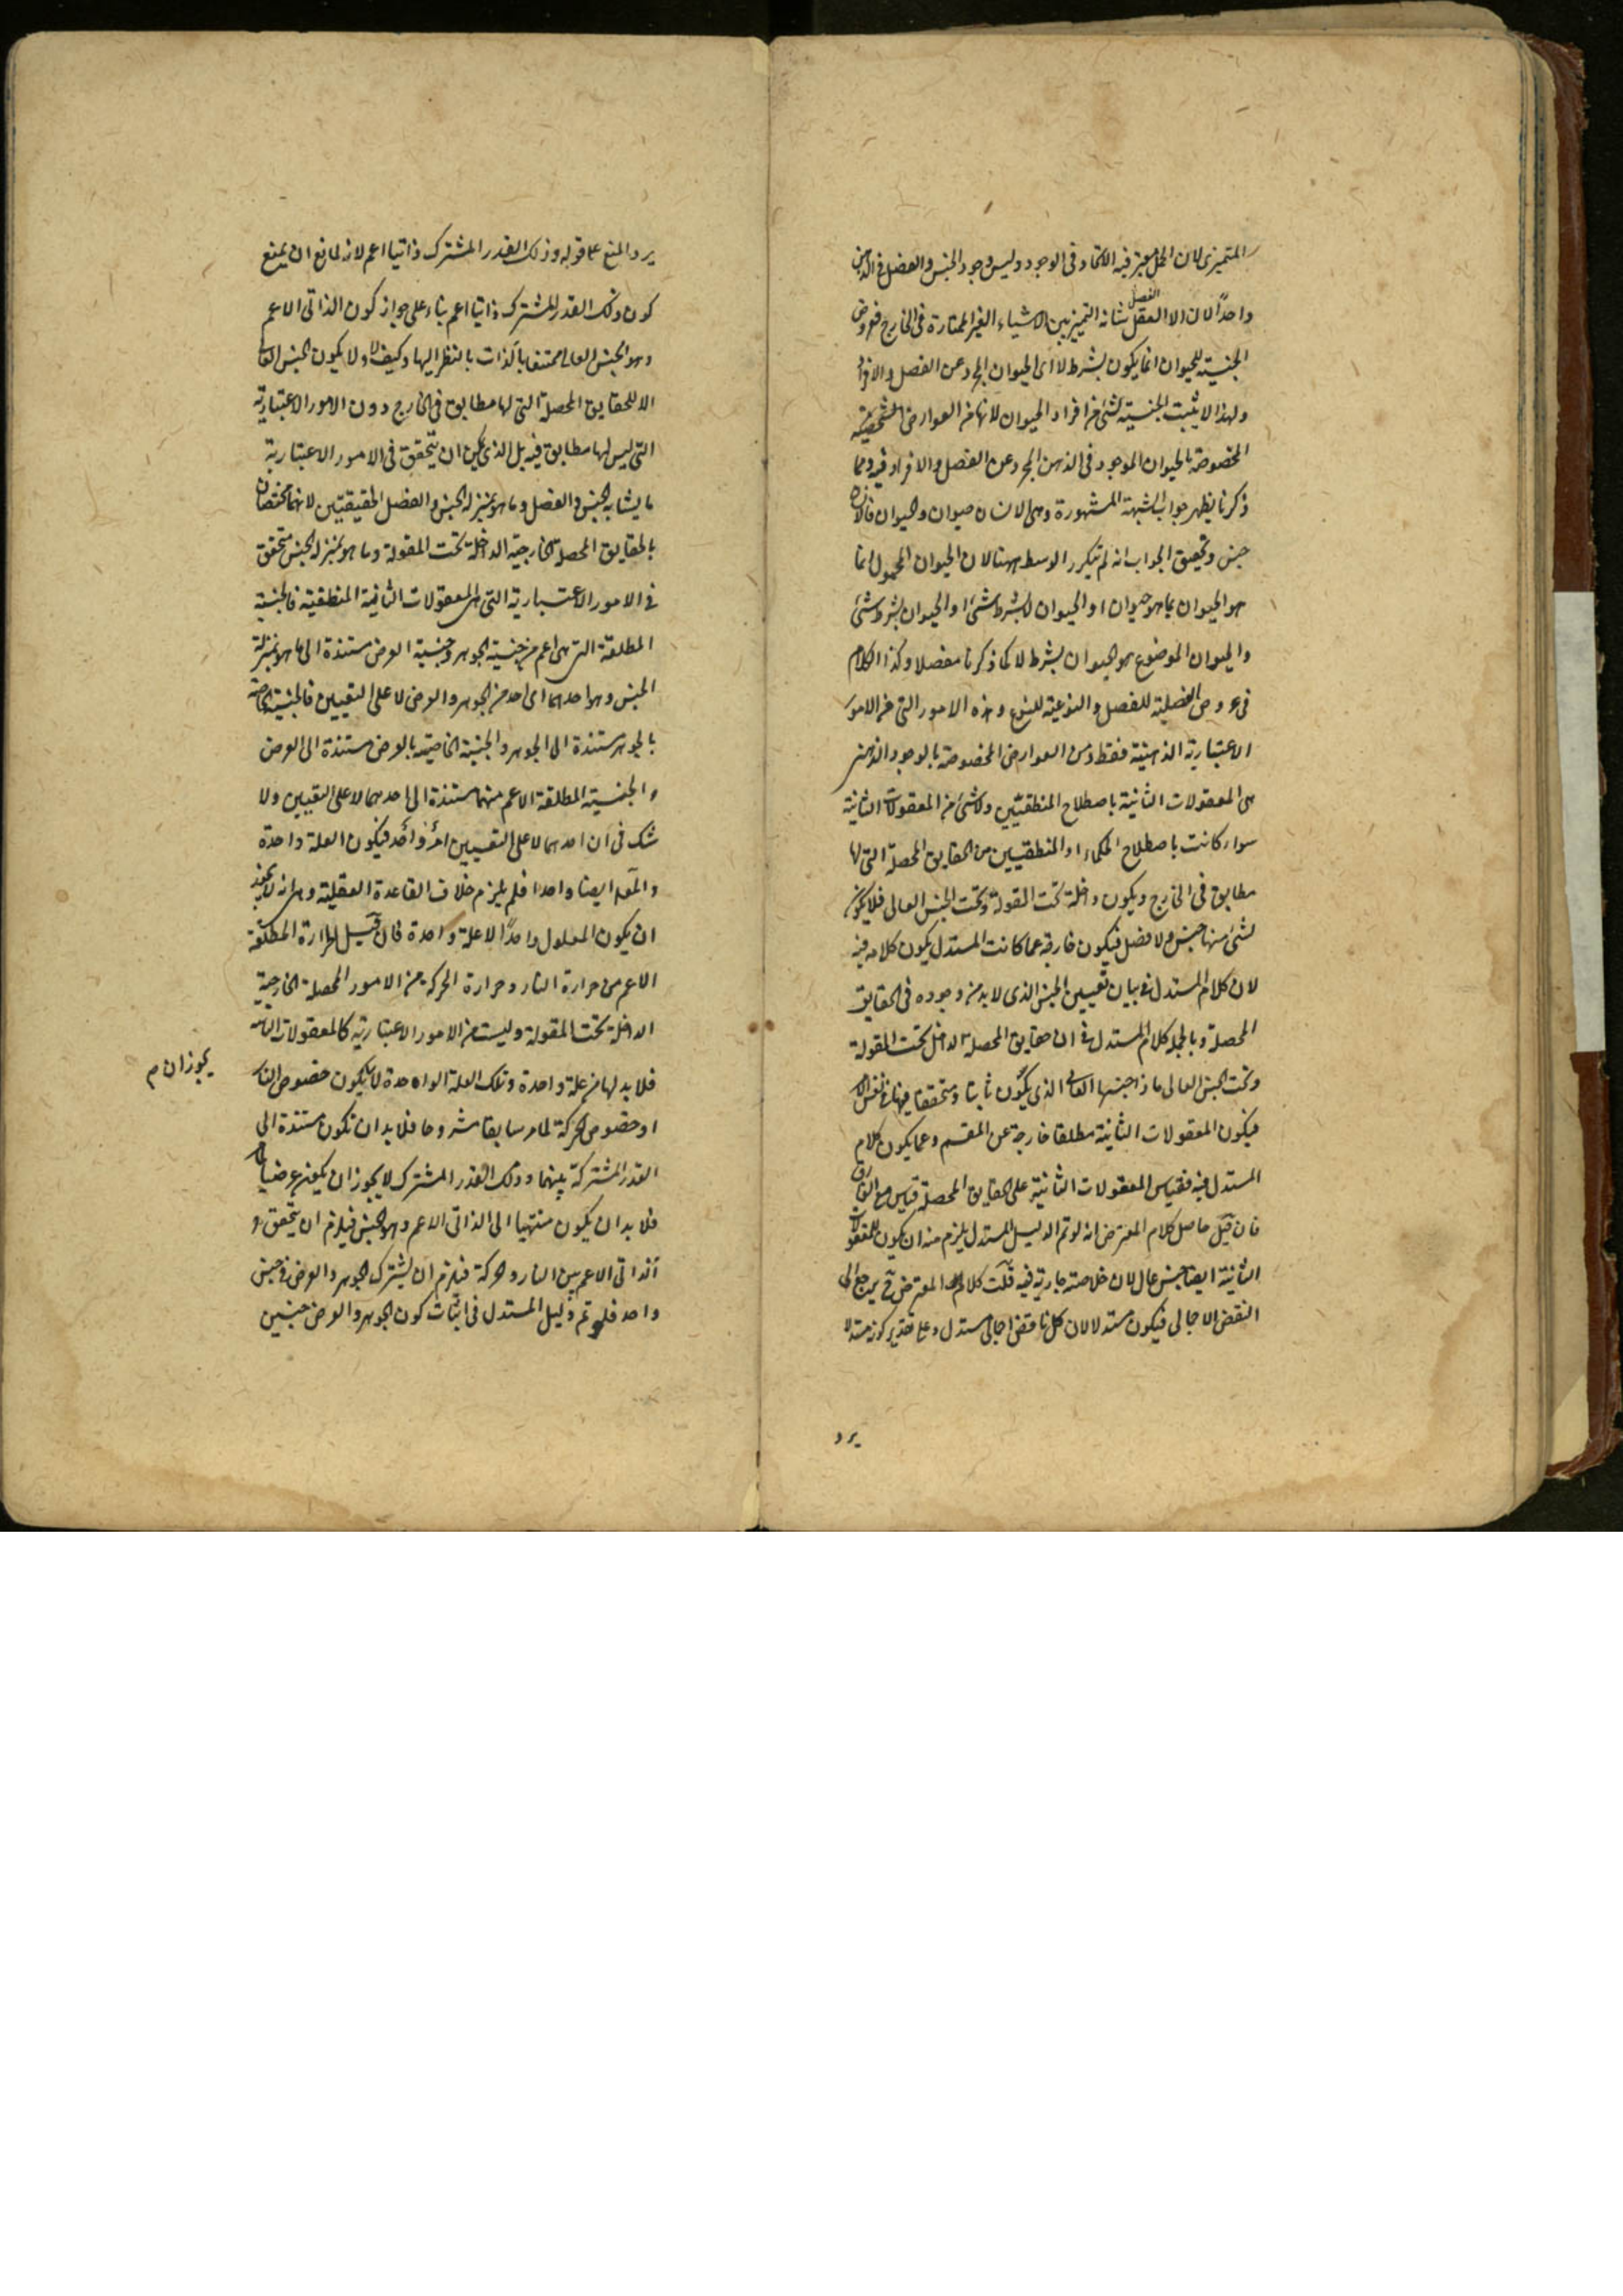 المتميزى لان الحمل معتبر فيه الاتحاد فى الوجود وليس وجود الجنس والفصل فى الذهن
واحدًا لان الا العقل الفصل شانه التمييز بين الاشياء الغير الممتازة فى الخارج فعروض
الجنسية للحيوان انما يكون بشرط لا اى الحيوان المجرد عن الفصل والافراد
ولهذا لا يثبت الجنسية لشئ من افراد الحيوان لانها من العوارض الشخصية
المخصوصة بالحيوان الموجود فى الذهن المجرد عن الفصل والافراد فيه ومما
ذكرنا يظهر جواب الشبهة المشهورة وهى الانسان حيوان والحيوان فالانسان
جنس وتحقيق الجواب انه لم يتكرر الوسط ههنا لان الحيوان المحمول انما
هو الحيوان بما هو حيوان او الحيوان لا بشرط شئ او الحيوان بشرط شئ
والحيوان الموضوع هو الحيوان بشرط لا كما ذكرنا مفصلا وكذا الكلام
فى عروض الفصلية للفصل والنوعية للنوع وهذه الامور التى من الامور
الاعتبارية الذهنية فقط ومن العوارض المخصوصة بالوجود الذهنى
هى المعقولات الثانية باصطلاح المنطقيين ولا شئ من المعقولات الثانية
سواء كانت باصطلاح الحكماء او المنطقيين من الحقايق المحصلة التى لها
مطابق فى الخارج ويكون داخلة تحت المقولة وتحت الجنس العالى فلا يكون
لشئ منها جنس ولا فصل فيكون خارجة عما كانت المستدل يكون كلامه فيه
لان كلام المستدل فى بيان تعيين الجنس الذى لا بد من وجوده فى الحقايق
المحصلة وبالجملة كلام المستدل فى ان حقايق المحصلة الداخل تحت المقولة
وتحت الجنس العالى ماذا جنسها العالى الذى يكون ثابتا ومتحققا فيها فى نفس الامر
فيكون المعقولات الثانية مطلقا خارجة عن المقسم وعما يكون كلام
المستدل فيه فقياس المعقولات الثانية على الحقايق المحصلة قياس مع الفارق
فان قيل حاصل كلام المعترض انه لو تم الدليل المستدل يلزم منه ان يكون للمعقولات
الثانية ايضا جنس عال لان خلاصته جارية فيه قلت كلام المعترض ح يرجع الى
النقض الاجمالى فيكون مستدلا لان كل ناقض اجمالى مستدل وعلى تقدير كونه مستدلا
يرد
يرد المنع على قوله وذلك القدر المشترك ذاتيا اعم لانه لمانع ان يمنع
كون ذلك القدر المشترك ذاتيا اعم بناء على جواز كون الذاتى الاعم
وهو الجنس العالى ممتنعا بالذات بالنظر اليها وكيف لا ولا يكون الجنس العالى
الا للحقايق المحصلة التى لها مطابق فى الخارج دون الامور الاعتبارية
التى ليس لها مطابق فيه بل الذى يمكن ان يتحقق فى الامور الاعتبارية
ما يشابه الجنس والفصل وما هو بمنزلة الجنس والفصل الحقيقيين لانهما مختصان
بالحقايق المحصلة الخارجية الداخلة تحت المقولة وما هو بمنزلة الجنس متحقق
فى الامور الاعتبارية التى هى المعقولات الثانية المنطقية فالجنسية
المطلقة التى هى اعم من جنسية الجوهر وجنسية العرض مستندة الى ما هو بمنزلة
الجنس وهو احدهما اى احد من الجوهر والعرض لا على التعيين فالجنسية الخاصة
بالجوهر مستندة الى الجوهر والجنسية الخاصية بالعرض مستندة الى العرض
والجنسية المطلقة الاعم منهما مستندة الى احدهما لا على التعيين ولا
شك فى ان احدهما لا على التعيين امر واحد فيكون العلة واحدة
والمعلول ايضا واحدا فلم يلزم خلاف القاعدة العقلية وهى انه لا يجوز
ان يكون المعلول واحدًا الا علة واحدة فان قيل الحرارة المطلقة
الاعم من حرارة النار وحرارة الحركة من الامور المحصلة الخارجية
الداخلة تحت المقولة وليست من الامور الاعتبارية كالمعقولات الثانية
فلا بد لها من علة واحدة وتلك العلة الواحدة لا يكون خصوص النار
يجوز ان م
او خصوص الحركة لما مر سابقا مشروحا فلا بد ان تكون مستندة الى
القدر المشتركة بينهما وذلك القدر المشترك لا يجوز ان يكون عرضيا
فلا بد ان يكون منتهيا الى الذاتى الاعم وهو الجنس فيلزم ان يتحقق
الذاتى الاعم بين النار والحركة فيلزم ان يشترك الجوهر والعرض فى جنس
واحد فلو تم دليل المستدل فى اثبات كون الجوهر والعرض جنسين